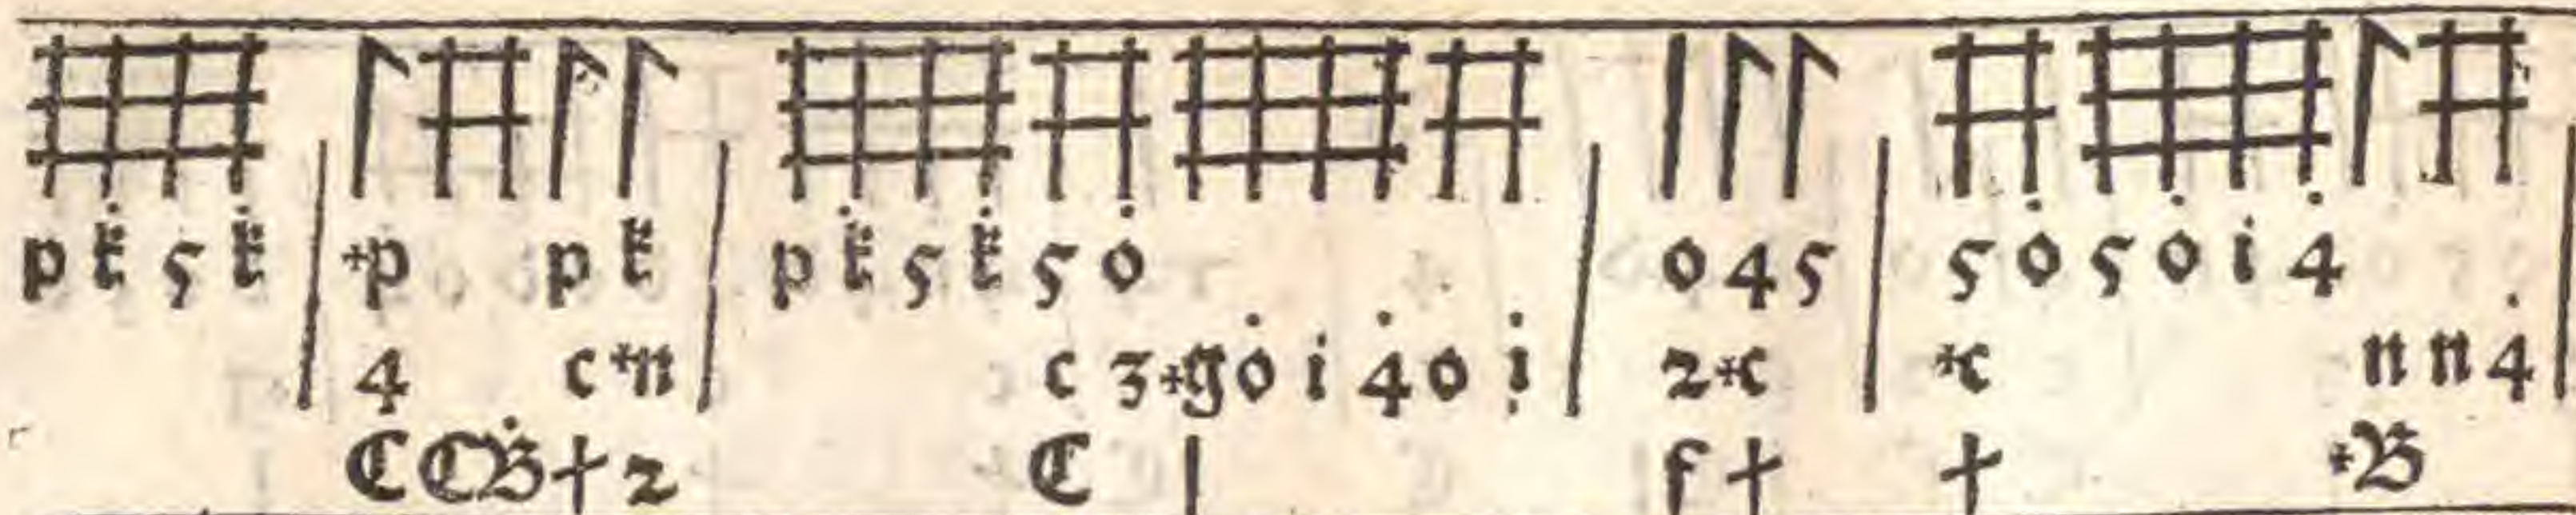 p k 5 k | *p p k | p k 5 k 5 o | o 4 5 | 5 o 5 o i 4 |
4 c *n | c 3 *g o i 4 o i | 2 *c | *c n n 4 |
C C B † 2 C | f † † *B